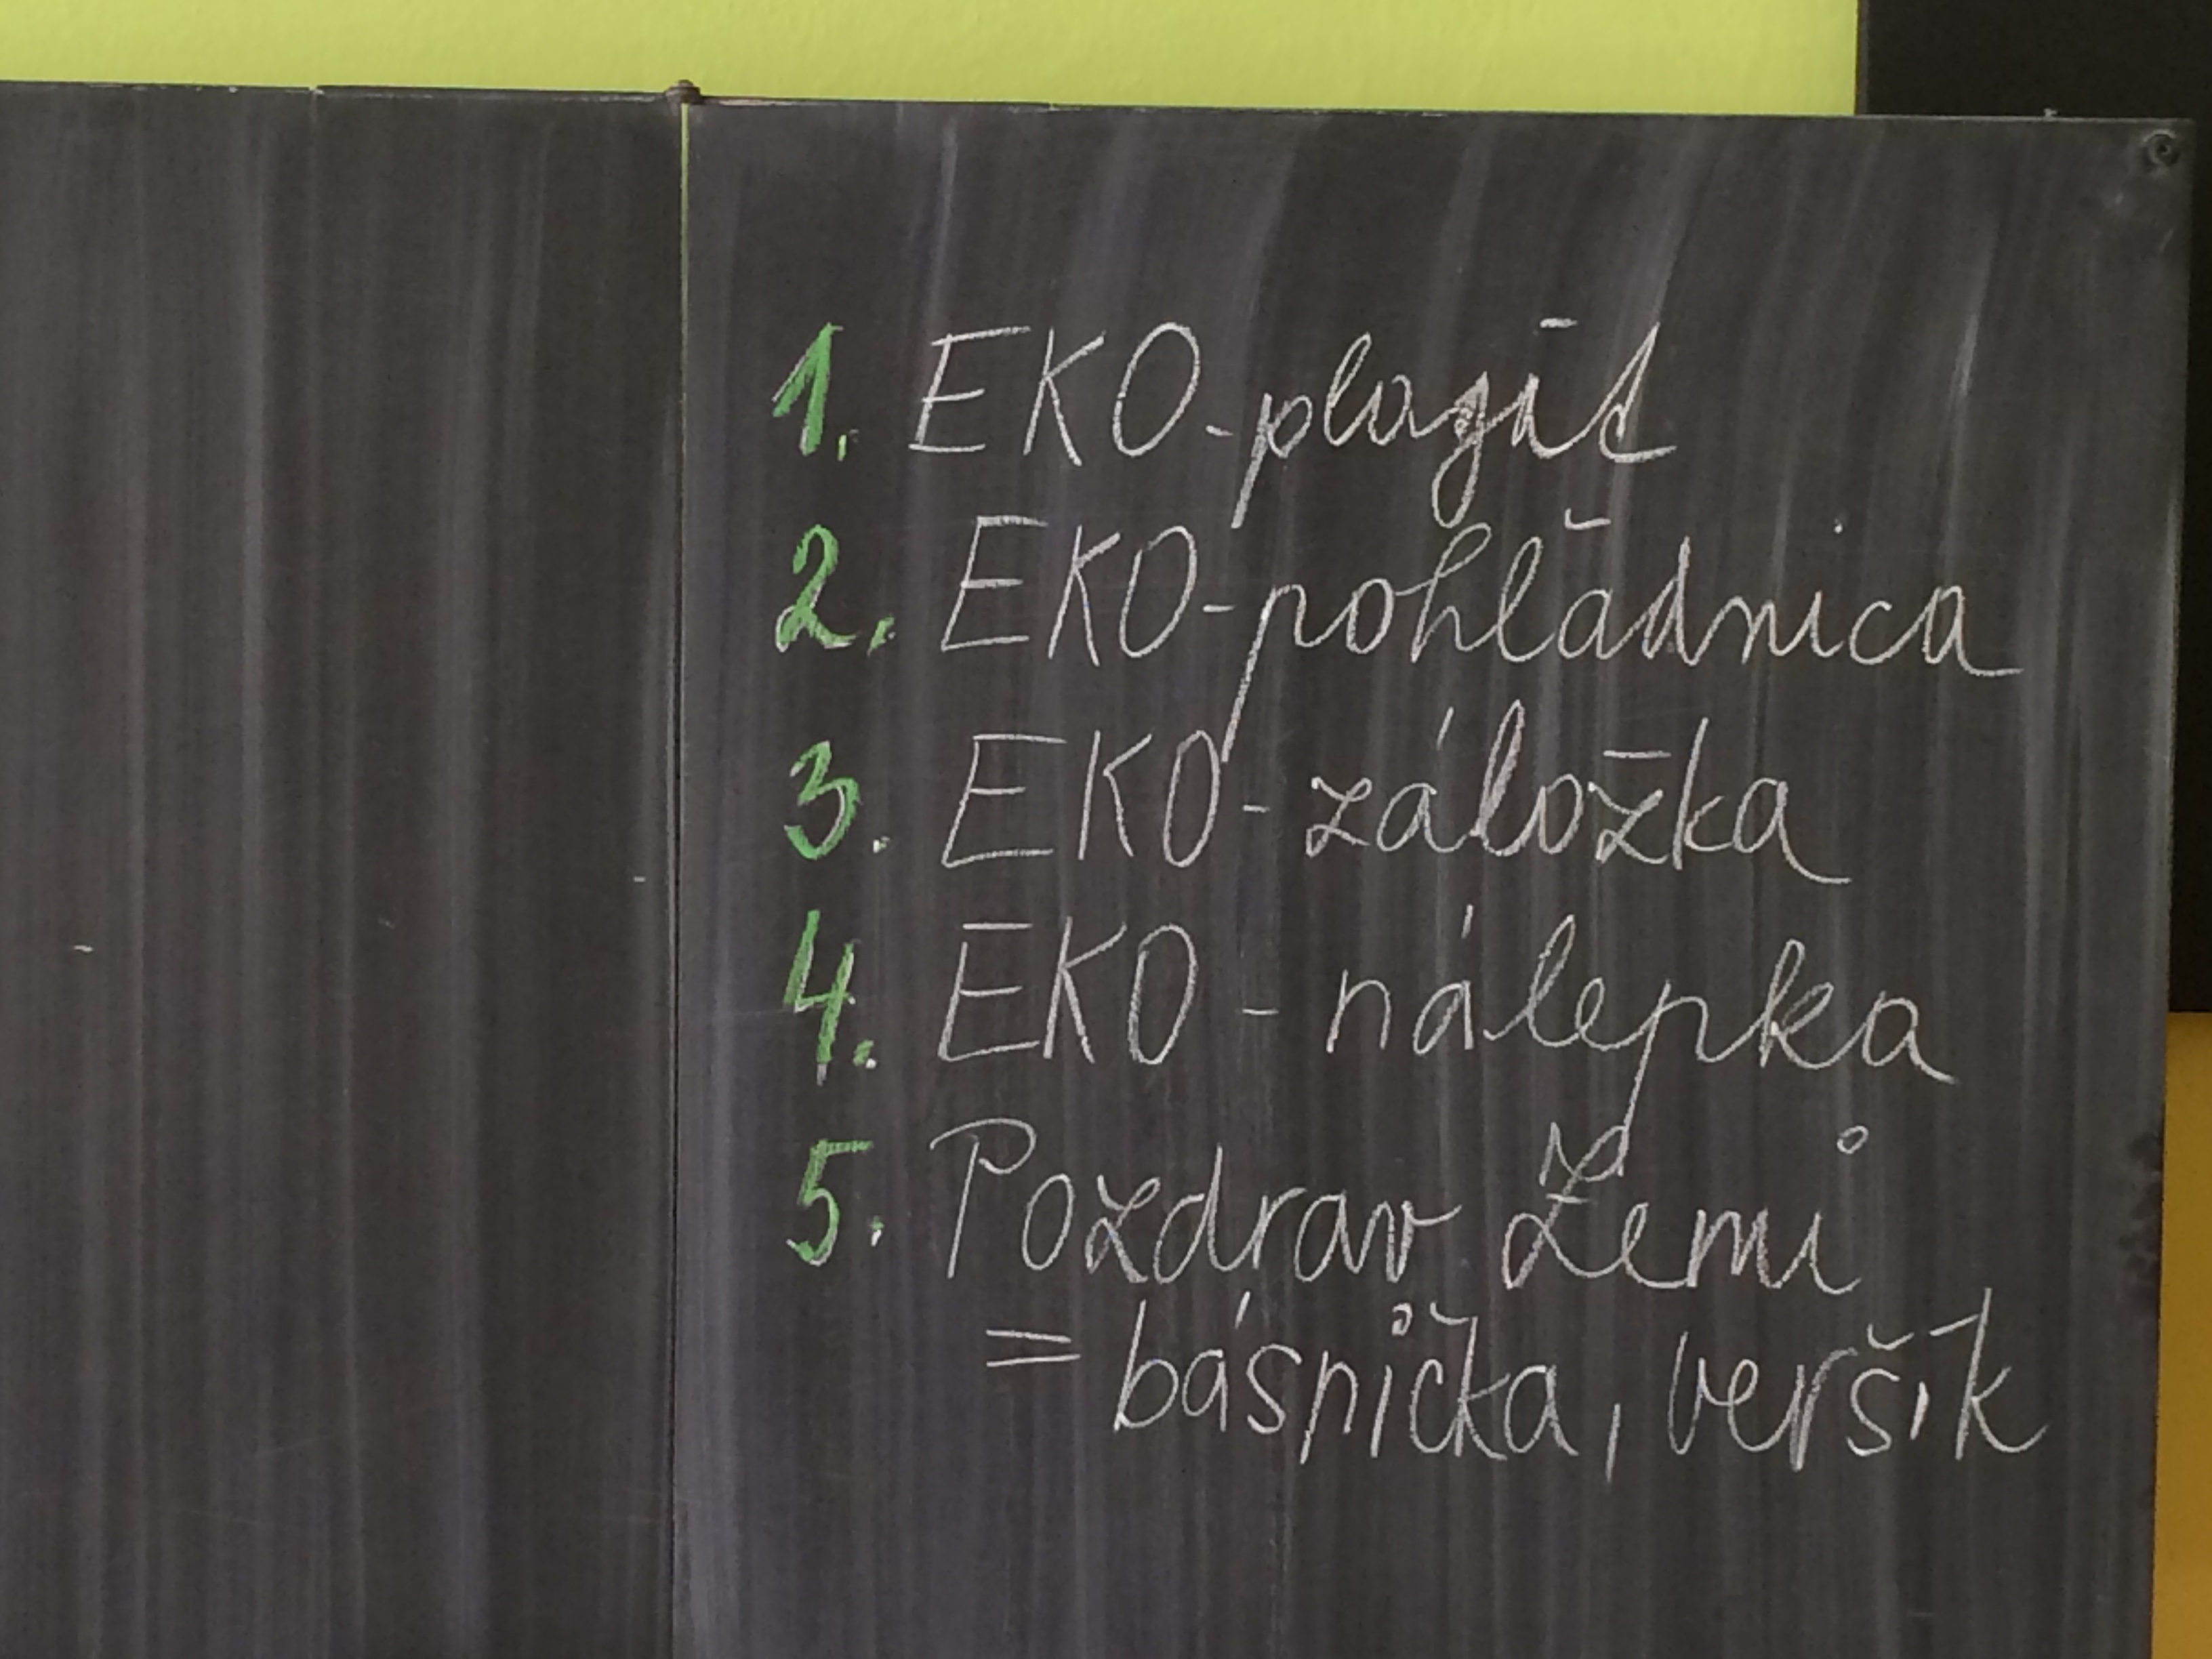 1. EKO-plagát
2. EKO-pohľadnica
3. EKO-záložka
4. EKO-nálepka
5. Pozdrav Zemi
= básnička, veršík